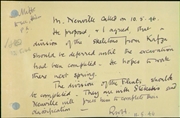 M. Neuville called on 10.5.40.
He proposed & I agreed that a
division of the skeletons from Kafza
should be deferred until the excavation
had been completed. He hopes to work
there next spring.
The division of the flints should
be completed. They are with Stekelis and
Neuville will have been to complete their
classification